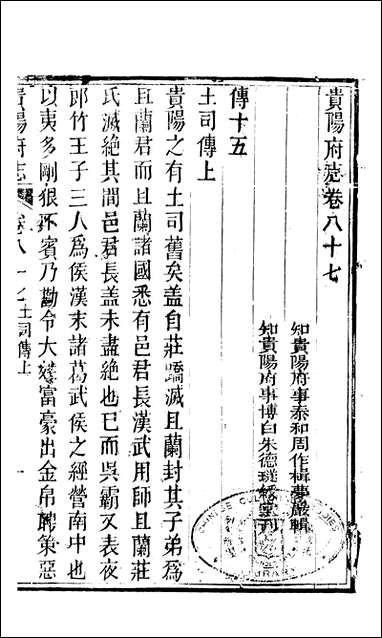 貴陽府志卷八十七
知貴陽府事泰和周作楫夢巖輯
知貴陽府事博白朱德璲綬堂刊
傳十五
土司傳上
貴陽之有土司舊矣盖自莊蹻滅且蘭封其子弟爲
且蘭君而且蘭諸國悉有邑君長漢武用師且蘭莊
氏滅絶其間邑君長盖未盡絶也已而吳霸又表夜
郎竹王子三人爲侯漢末諸葛武侯之經營南中也
以夷多剛狠不賓乃勸令大姓富豪出金帛聘策惡
貴陽府志
卷八十七土司傳上
一